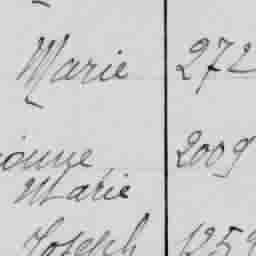 Marie 272
onne 2009
Marie
Joseph 1259